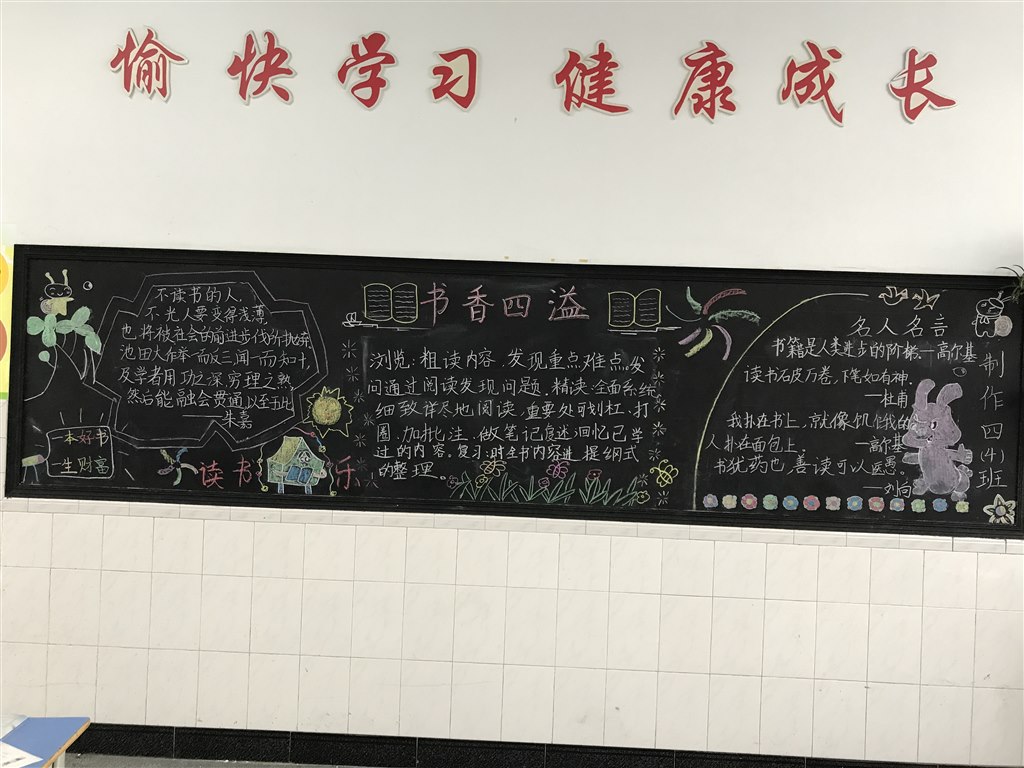 愉快学习 健康成长
不读书的人,
不光人要变得浅薄,
也将被社会的前进步伐所抛弃
池田大作举一而反三闻一而知十,
及学者用功之深穷理之熟
然后能融会贯通以至于此
——朱嘉
一本好书
一生财富
读书 乐
书香四溢
浏览:粗读内容、发现重点难点。发
问通过阅读发现问题、精读:全面系统
细致详尽地阅读,重要处可划杠、打
圈、加批注、做笔记复述:回忆已学
过的内容。复习:对全书内容进 提纲式
的整理。
名人名言
书籍是人类进步的阶梯.—高尔基
读书破万卷,下笔如有神.
—杜甫
我扑在书上,就像饥饿的
人扑在面包上,
—高尔基
书犹药也,善读可以医愚
—刘向
制作四(4)班